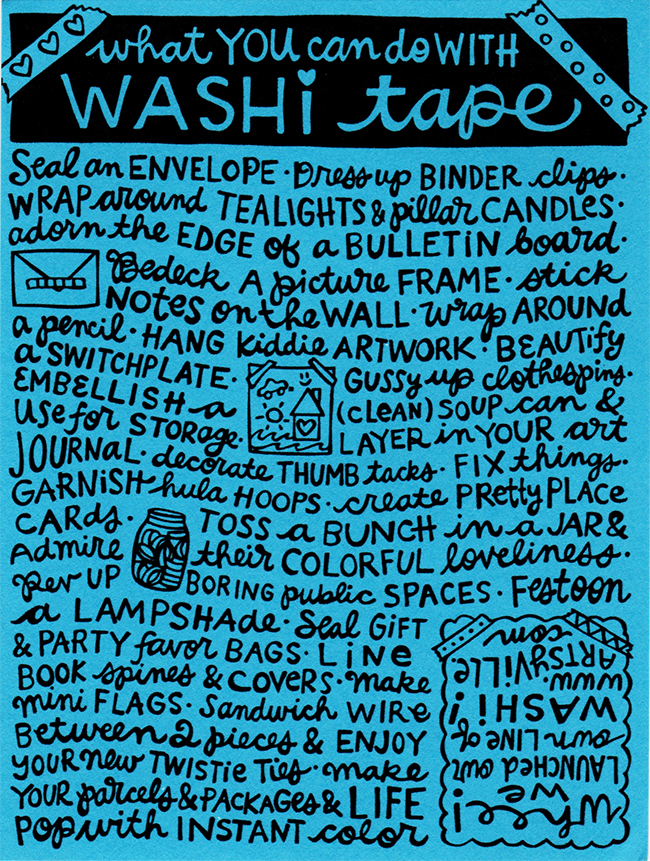 what YOU can do WITH
WASHi tape
Seal an ENVELOPE · Dress up BINDER clips ·
WRAP around TEALIGHTS & pillar CANDLES ·
adorn the EDGE of a BULLETIN board ·
Bedeck A picture FRAME · stick
NOTES on the WALL · Wrap AROUND
a pencil · HANG kiddie ARTWORK · BEAUTify
a SWITCHPLATE · GUSSY up clothespins ·
EMBELLISH a (cLEAN) SOUP can &
USE for STORAGE · LAYER in YOUR art
JOURNAL · decorate THUMB tacks · FIX things ·
GARNiSH hula HOOPS · create PRettY PLACe
CARds · TOSS a BUNCH in a JAR &
Admire their COLORFUL loveliness ·
Rev UP BORING public SPACES · Festoon
a LAMPSHADe · Seal GiFT
& PARTY favor BAGS · LiNe
BOOK spines & COVERS · make
mini FLAGS · Sandwich WIRe
Between 2 pieces & ENJOY
YOUR new TWiSTie Ties · make
YOUR parcels & PACKAGes & LIFE
Pop with INSTANT color
Whee!
We
LAUNCHED our
own LiNe of
WASHi!
www.
ARTSyViLLe.
com